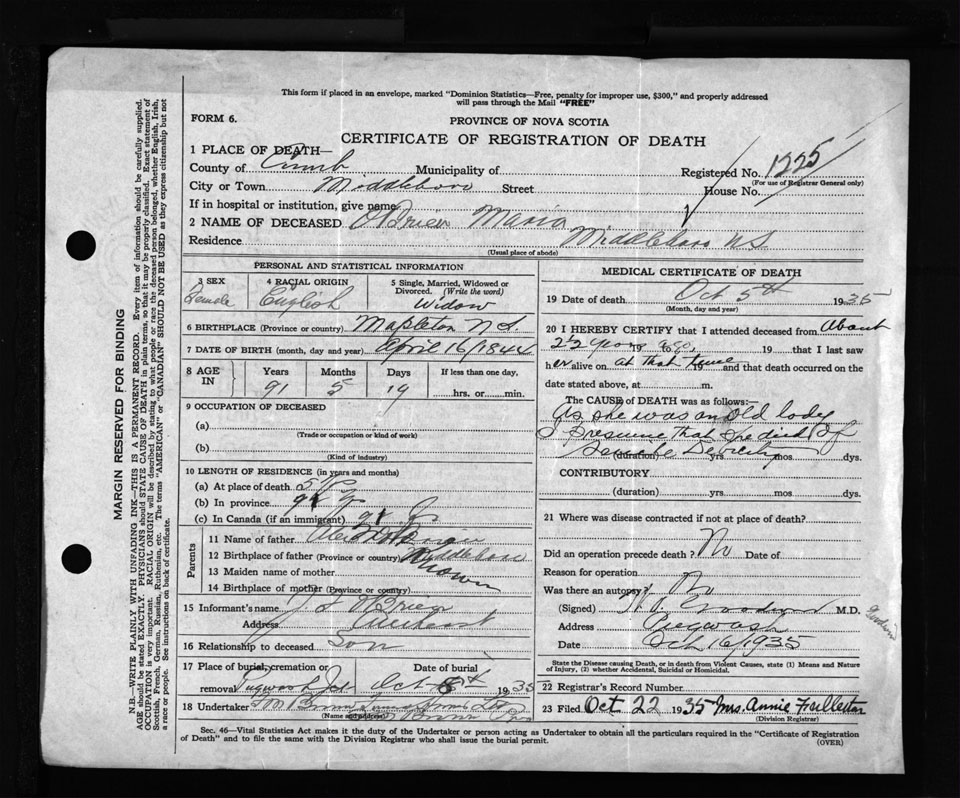 This form if placed in an envelope, marked "Dominion Statistics—Free, penalty for improper use, $300," and properly addressed
will pass through the Mail "FREE"
FORM 6.
PROVINCE OF NOVA SCOTIA
CERTIFICATE OF REGISTRATION OF DEATH
1 PLACE OF DEATH—
County of Cumb Municipality of Registered No. 1225
(For use of Registrar General only)
City or Town Middleboro Street House No.
If in hospital or institution, give name
2 NAME OF DECEASED O'Brien Maria
Residence Middleboro N S
(Usual place of abode)
PERSONAL AND STATISTICAL INFORMATION
3 SEX Female
4 RACIAL ORIGIN English
5 Single, Married, Widowed or Divorced. (Write the word) Widow
6 BIRTHPLACE (Province or country) Mapleton N S.
7 DATE OF BIRTH (month, day and year) April 16/1844
8 AGE IN Years 91 Months 5 Days 19 If less than one day, hrs. or min.
9 OCCUPATION OF DECEASED
(a)
(Trade or occupation or kind of work)
(b)
(Kind of industry)
10 LENGTH OF RESIDENCE (in years and months)
(a) At place of death
(b) In province
(c) In Canada (if an immigrant)
Parents
11 Name of father
12 Birthplace of father (Province or country) Middleboro
13 Maiden name of mother Brown
14 Birthplace of mother (Province or country)
15 Informant's name O'Brien
Address Amherst
16 Relationship to deceased Son
17 Place of burial, cremation or removal Pugwash Date of burial Oct 8th 1935
18 Undertaker
(Name and address)
MEDICAL CERTIFICATE OF DEATH
19 Date of death Oct 5th 1935
(Month, day and year)
20 I HEREBY CERTIFY that I attended deceased from About
2½ years ago, 19 that I last saw
her alive on at that time and that death occurred on the
date stated above, at m.
The CAUSE of DEATH was as follows:
As she was an old lady
I presume that she died of
Senile Debility
(duration) yrs. mos. dys.
CONTRIBUTORY
(duration) yrs. mos. dys.
21 Where was disease contracted if not at place of death?
Did an operation precede death? No Date of
Reason for operation
Was there an autopsy? No
(Signed) M.D.
Address Pugwash
Date Oct 16/1935
State the Disease causing Death, or in death from Violent Causes, state (1) Means and Nature
of Injury, (2) whether Accidental, Suicidal or Homicidal.
22 Registrar's Record Number
23 Filed Oct 22 1935 Mrs. Annie Fullerton
(Division Registrar)
Sec. 46—Vital Statistics Act makes it the duty of the Undertaker or person acting as Undertaker to obtain all the particulars required in the "Certificate of Registration
of Death" and to file the same with the Division Registrar who shall issue the burial permit.
(OVER)
MARGIN RESERVED FOR BINDING
N.B.—WRITE PLAINLY WITH UNFADING INK—THIS IS A PERMANENT RECORD. Every item of information should be carefully supplied.
AGE should be stated EXACTLY. PHYSICIANS should STATE CAUSE OF DEATH in plain terms, so that it may be properly classified. Exact statement of
OCCUPATION is very important. RACIAL ORIGIN will be described by stating to what people or race the deceased person belonged, whether English, Irish,
Scottish, French, German, Russian, Ruthenian, etc. The terms "AMERICAN" or "CANADIAN" SHOULD NOT BE USED as they express citizenship but not
a race or people. See instructions on back of certificate.